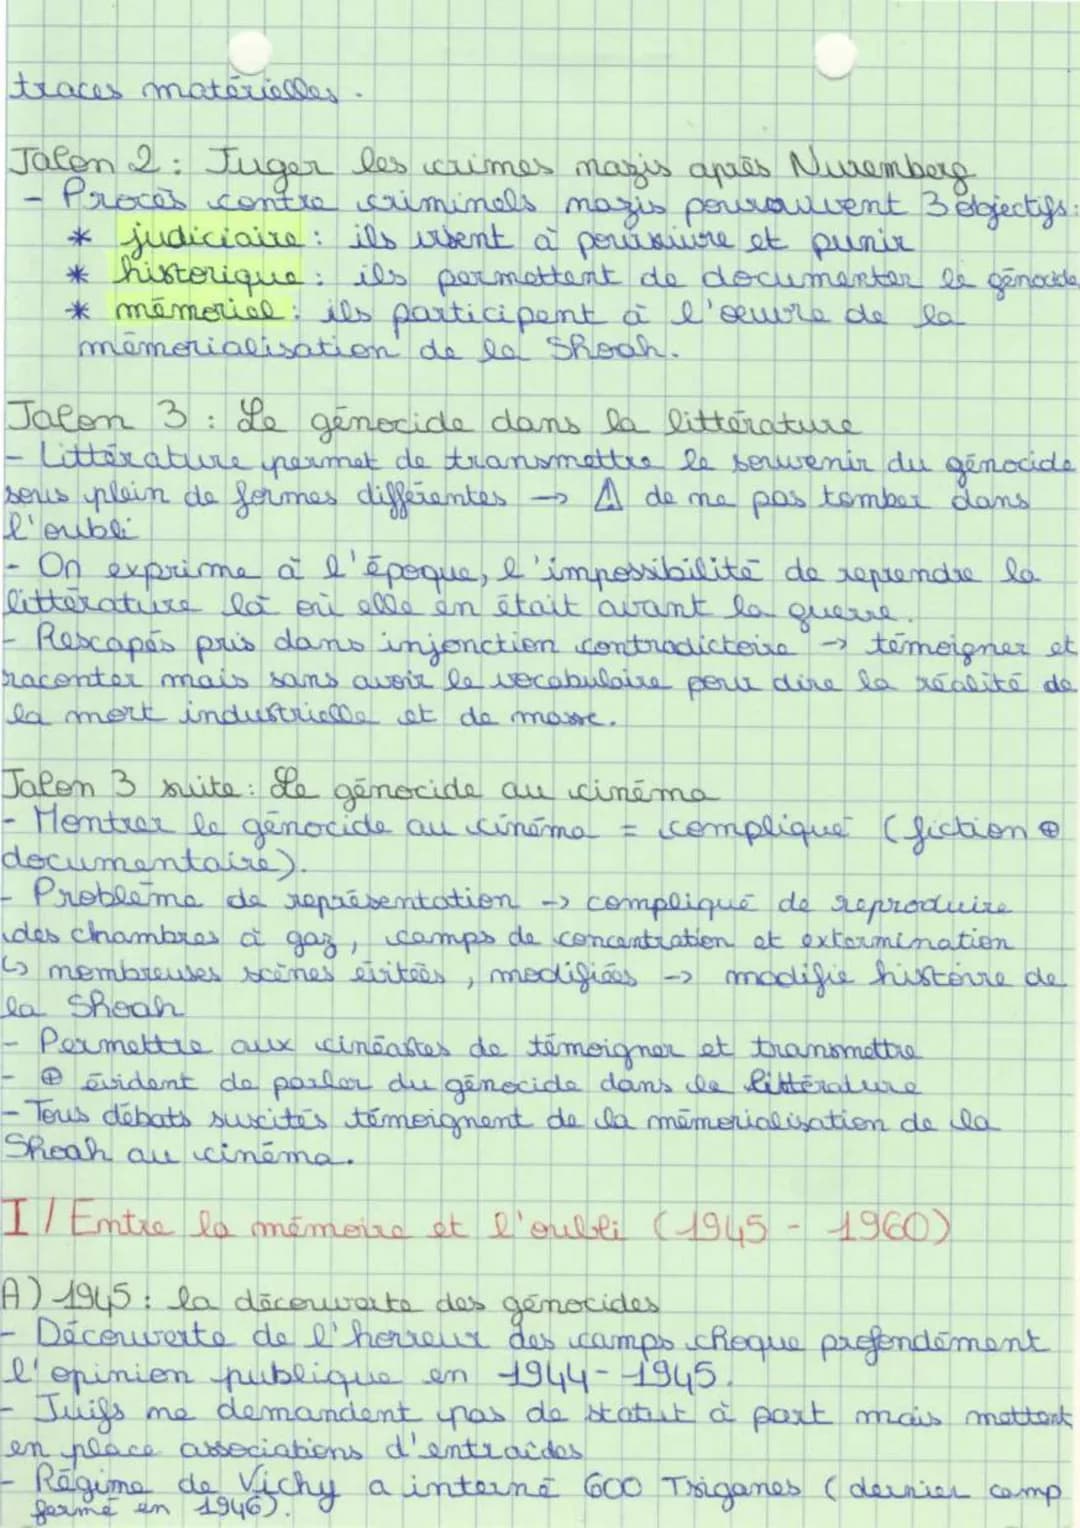 traces matérielles.
Jalon 2 : Juger les crimes nazis après Nuremberg
- Procès contre criminels nazis poursuivent 3 objectifs :
* judiciaire : ils visent à poursuivre et punir
* historique : ils permettent de documenter le génocide
* mémoriel : ils participent à l'oeuvre de la
mémorialisation de la Shoah.
Jalon 3 : Le génocide dans la littérature
- Littérature permet de transmettre le souvenir du génocide
sous plein de formes différentes → ⚠ de ne pas tomber dans
l'oubli
- On exprime à l'époque, l'impossibilité de reprendre la
littérature là où elle en était avant la guerre.
- Rescapés pris dans injonction contradictoire → témoigner et
raconter mais sans avoir le vocabulaire pour dire la réalité de
la mort industrielle et de masse.
Jalon 3 suite : Le génocide au cinéma
- Montrer le génocide au cinéma = compliqué (fiction ⊕
documentaire).
- Problème de représentation → compliqué de reproduire
des chambres à gaz, camps de concentration et extermination
↳ nombreuses scènes évitées, modifiées → modifie histoire de
la Shoah
- Permettre aux cinéastes de témoigner et transmettre
- ⊕ évident de parler du génocide dans la littérature
- Tous débats suscités témoignent de la mémorialisation de la
Shoah au cinéma.
I / Entre la mémoire et l'oubli (1945 - 1960)
A) 1945 : la découverte des génocides
- Découverte de l'horreur des camps choque profondément
l'opinion publique en 1944-1945.
- Juifs ne demandent pas de statut à part mais mettent
en place associations d'entraides
- Régime de Vichy a interné 600 Tsiganes (dernier camp
fermé en 1946).